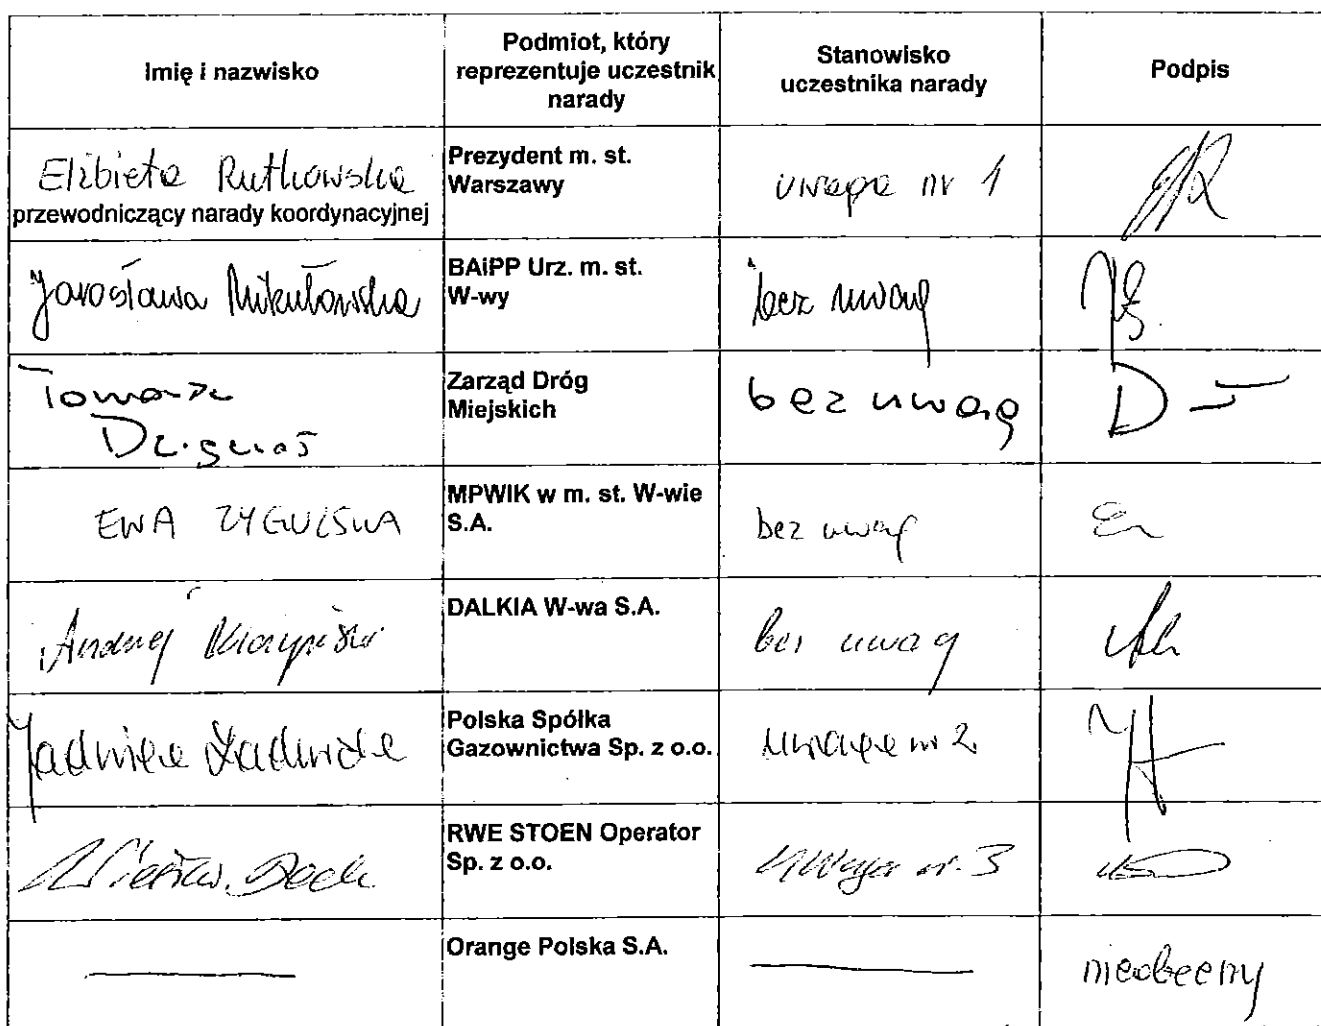 Imię i nazwisko
Podmiot, który
reprezentuje uczestnik
narady
Stanowisko
uczestnika narady
Podpis
Elżbieta Rutkowska
przewodniczący narady koordynacyjnej
Prezydent m. st.
Warszawy
uwaga nr 1
Jarosława Mikułowska
BAiPP Urz. m. st.
W-wy
bez uwag
Tomasz
Zarząd Dróg
Miejskich
bez uwag
EWA
MPWIK w m. st. W-wie
S.A.
bez uwag
Andrzej
DALKIA W-wa S.A.
bez uwag
Jadwiga
Polska Spółka
Gazownictwa Sp. z o.o.
uwaga nr 2
Wiesław
RWE STOEN Operator
Sp. z o.o.
uwaga nr. 3
Orange Polska S.A.
nieobecny